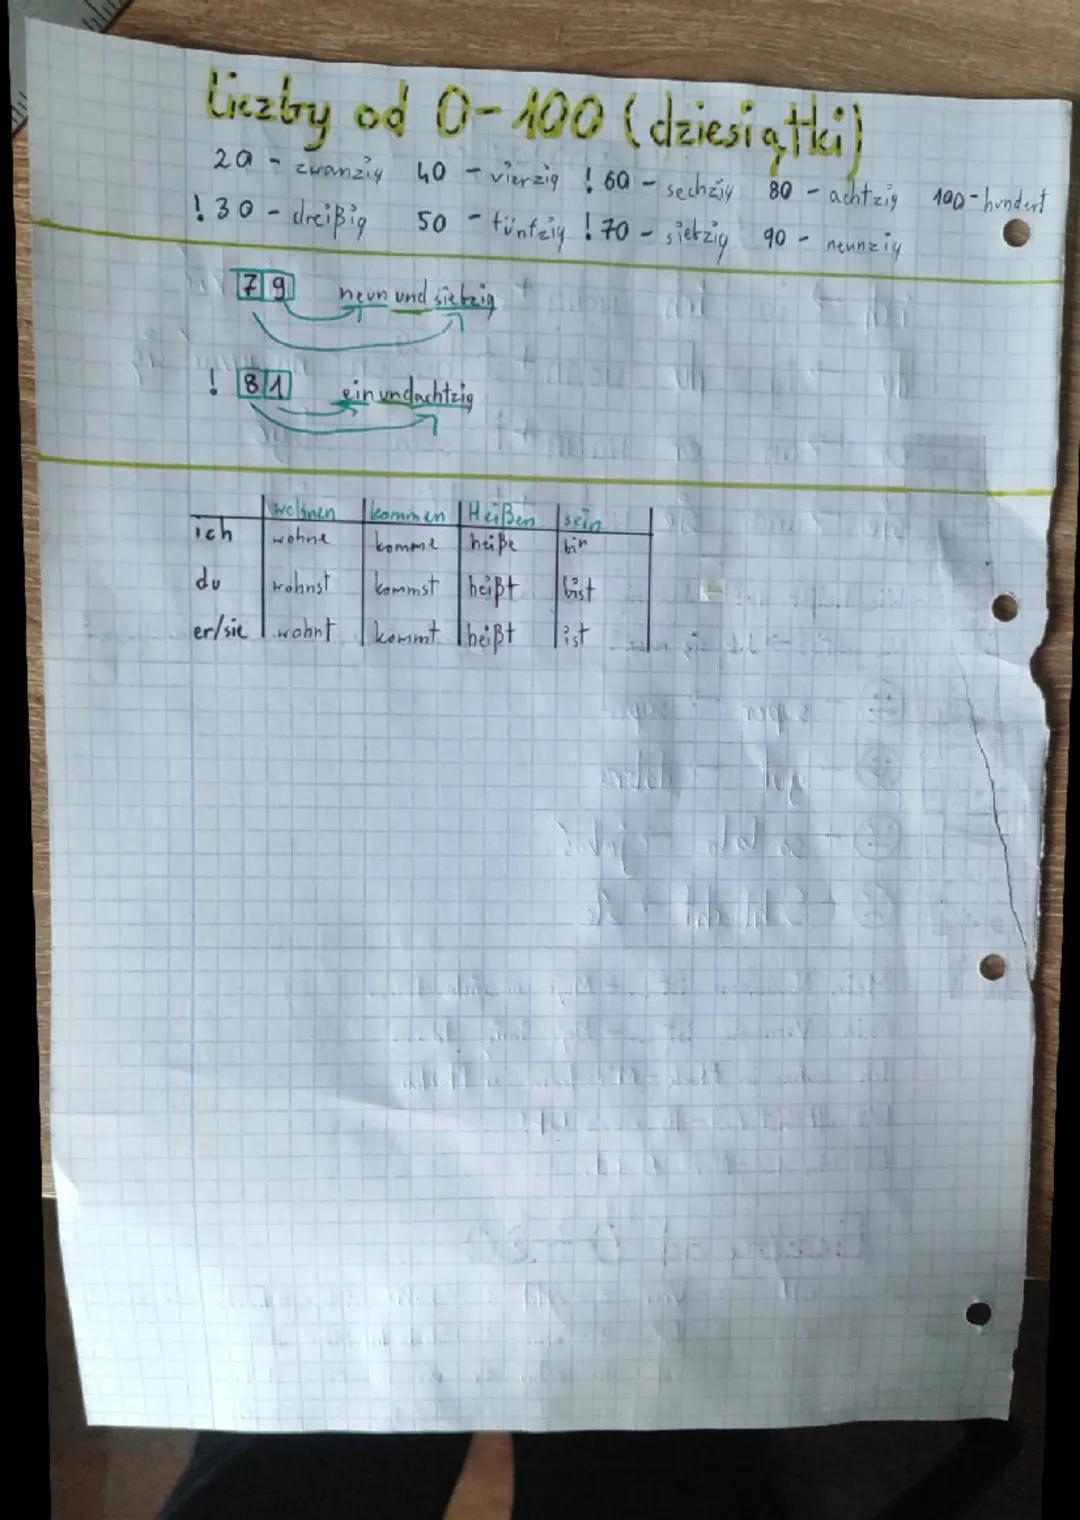 Liczby od 0-100 (dziesiątki)
20 - zwanzig 40 - vierzig ! 60 - sechzig 80 - achtzig 100 - hundert
! 30 - dreißig 50 - fünfzig ! 70 - siebzig 90 - neunzig
79 neun und siebzig
! 81 einundachtzig
wohnen kommen Heißen sein
ich wohne komme heiße bin
du wohnst kommst heißt bist
er/sie wohnt kommt heißt ist